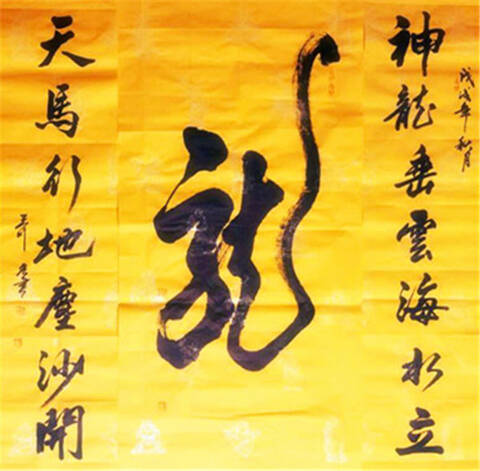 戊戌年秋月
神龍垂雲海水立
龍
天馬行地塵沙開